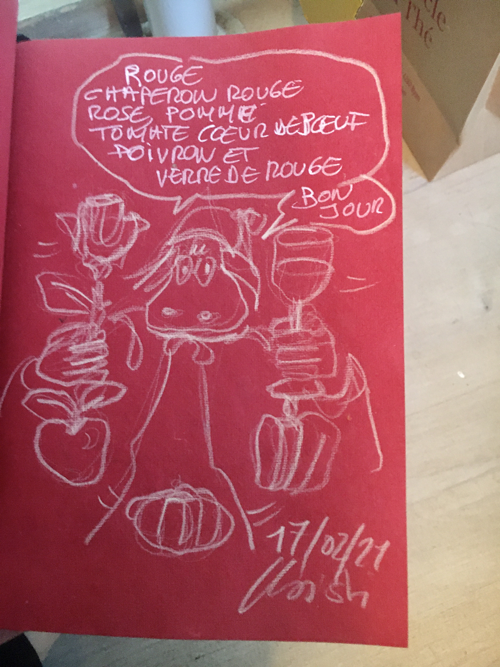 ROUGE
CHAPERON ROUGE
ROSE, POMME
TOMATE COEUR DE BOEUF
POIVRON ET
VERRE DE ROUGE
BON
JOUR
17/02/21